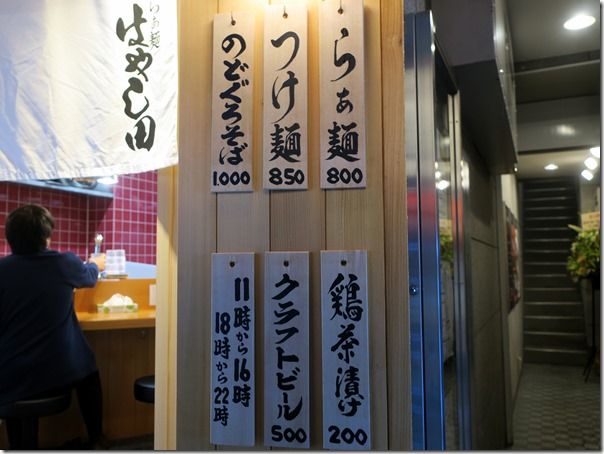 らぁ麺
はやし田
らぁ麺
800
つけ麺
850
のどぐろそば
1,000
鶏茶漬け
200
クラフトビール
500
11時から16時
18時から22時